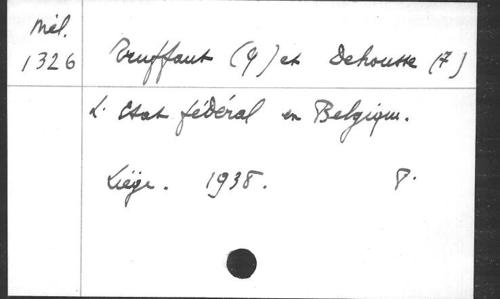 Mél.
1326
Truffaut (G) et Dehousse (F)
L'Etat fédéral en Belgique.
Liège. 1938. 8°